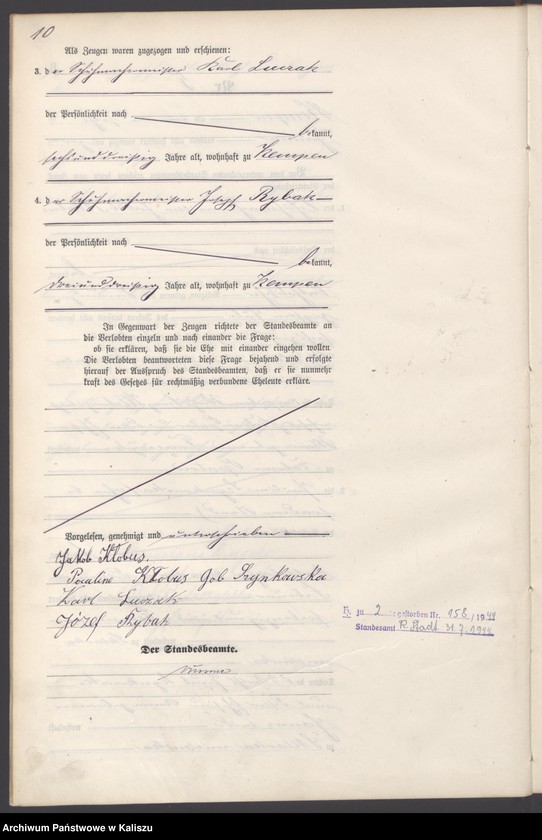 10
Als Zeugen waren zugezogen und erschienen:
3. der Schuhmachermeister Karl Luczak
der Persönlichkeit nach
bekannt,
sechsunddreißig Jahre alt, wohnhaft zu Kempen
4. der Schuhmachermeister Joseph Rybak
der Persönlichkeit nach
bekannt,
dreiunddreißig Jahre alt, wohnhaft zu Kempen
In Gegenwart der Zeugen richtete der Standesbeamte an
die Verlobten einzeln und nach einander die Frage:
ob sie erklären, daß sie die Ehe mit einander eingehen wollen.
Die Verlobten beantworteten diese Frage bejahend und erfolgte
hierauf der Ausspruch des Standesbeamten, daß er sie nunmehr
kraft des Gesetzes für rechtmäßig verbundene Eheleute erkläre.
Vorgelesen, genehmigt und unterschrieben
Jakob Kłobus.
Paulina Kłobus geb Szynkowska
Karl Luczak
Józef Rybak
Der Standesbeamte.
H. zu 2 gestorben Nr. 158/1944
Standesamt 31.7.1944
Archiwum Państwowe w Kaliszu